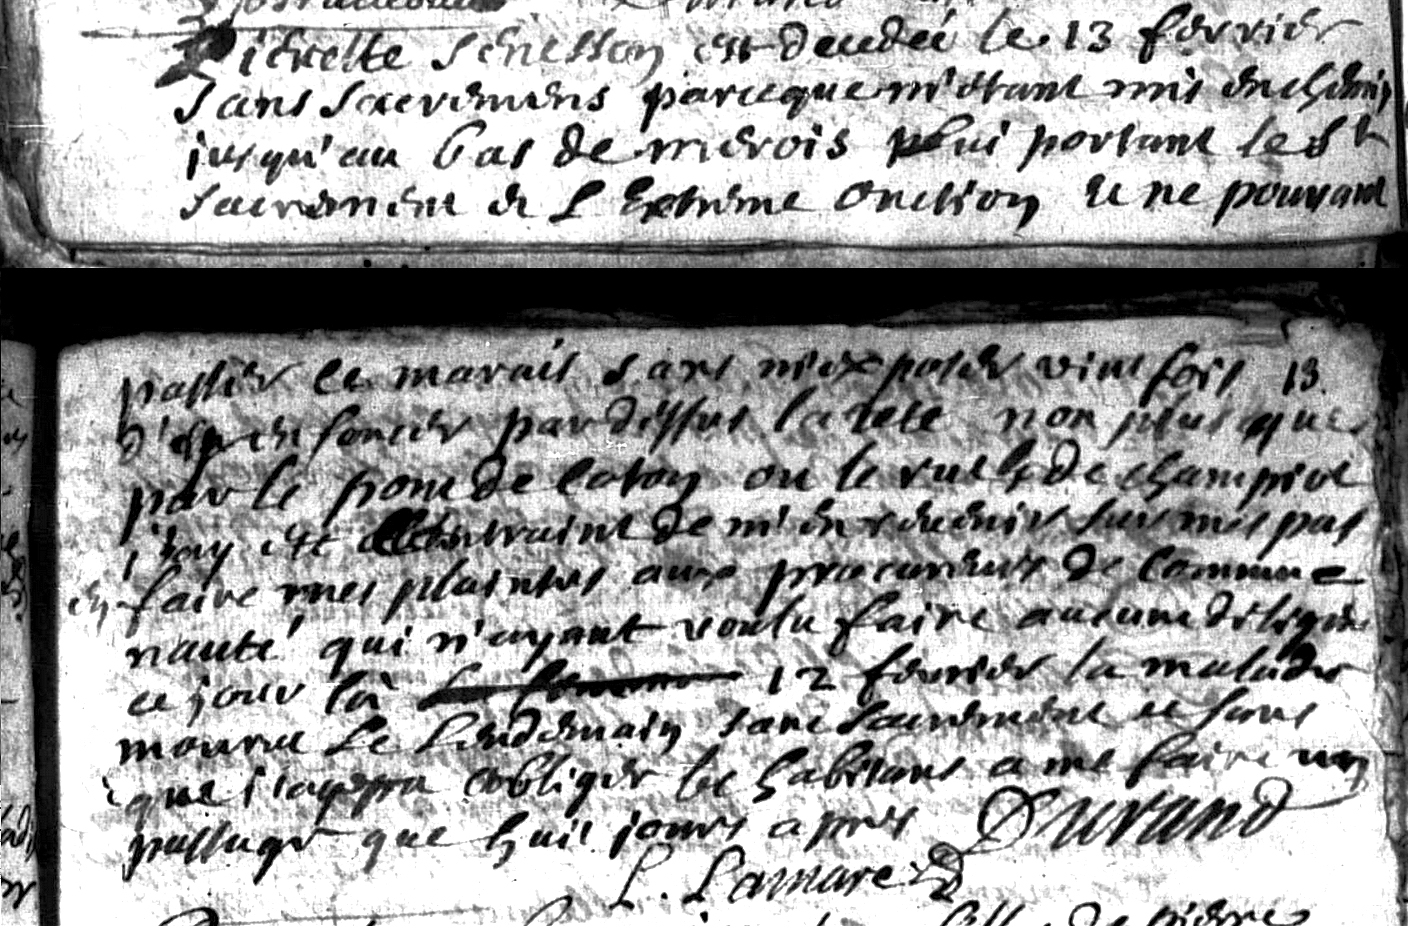 Pierette Senesson est decedeé le 13 fevrier
sans sacremens parceque m'etant mis en chemin
jusqu'au bas de merois plui portant le St
sacrement et L'Extreme onction et ne pouvant
passer le marais sans m'exposer vint fois 13.
d'enfoncer par dessus la tete non plus que
par le pont de ou le de champive
j'ay eté contraint de m'en revenir sur mes pas
en faire mes plaintes aux procureurs de commu=
nauté qui n'ayant voulu faire aucune diligence
ce jour là 12 fevrier la malade
mourut Le Lendemain sans sacrement et sans
que j'aye pu obliger les habitans a me faire un
passage que huit jours apres Durand
L. Lamare
de pierre